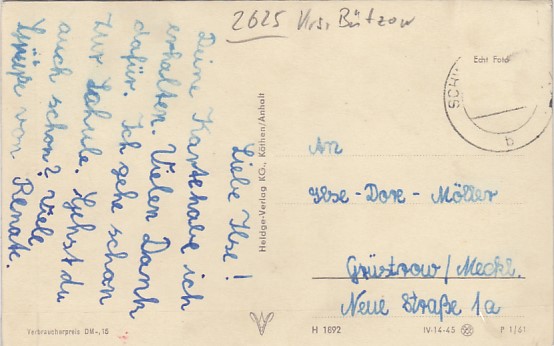 2625 Krs. Bützow
Liebe Ilse!
Deine Karte habe ich
erhalten. Vielen Dank
dafür. Ich gehe schon
zur Schule. Gehst du
auch schon? Viele
Grüße von
Renate.
Heldge-Verlag KG., Köthen/Anhalt
Echt Foto
SCH
b
An
Ilse-Dore-Möller
Grüstrow/Meckl.
Neue Straße 1a
Verbraucherpreis DM -,15
H 1892
IV-14-45
P 1/61